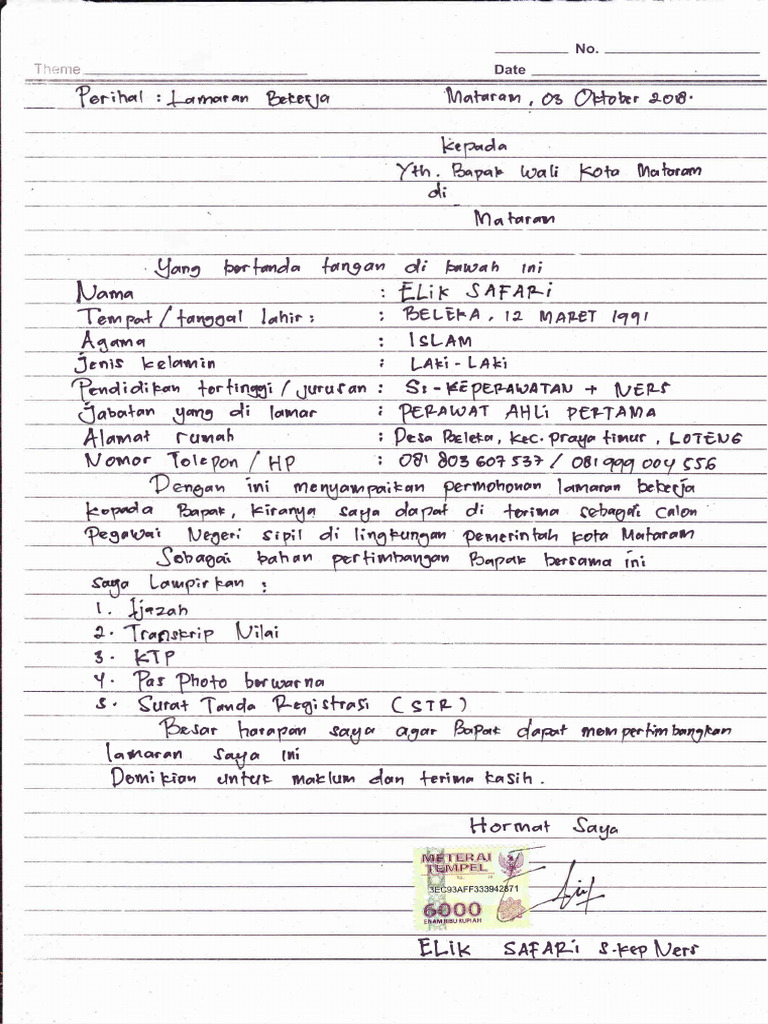 No.
Theme Date
Perihal : Lamaran Bekerja Mataram, 03 Oktober 2018.
Kepada
Yth. Bapak Wali Kota Mataram
di
Mataram
Yang bertanda tangan di bawah ini
Nama : ELiK SAFARi
Tempat/tanggal lahir : : BELEKA, 12 MARET 1991
Agama : ISLAM
Jenis Kelamin : LAKi-LAKi
Pendidikan tertinggi/jurusan : S1-KEPERAWATAN + NERS
Jabatan yang di lamar : PERAWAT AHLi PERTAMA
Alamat rumah : Desa Beleka, Kec. Praya timur, LOTENG
Nomor Telepon/HP : 081 803 607 537 / 081 999 004 556
Dengan ini menyampaikan permohonan lamaran bekerja
kepada Bapak, kiranya saya dapat di terima sebagai Calon
Pegawai Negeri sipil di lingkungan pemerintah kota Mataram
Sebagai bahan pertimbangan Bapak bersama ini
saya lampirkan :
1. Ijazah
2. Transkrip Nilai
3. KTP
4. Pas Photo berwarna
5. Surat Tanda Registrasi (STR)
Besar harapan saya agar Bapak dapat mempertimbangkan
lamaran saya ini
Demikian untuk maklum dan terima kasih.
Hormat Saya
METERAI
TEMPEL
3EC93AFF333942871
6000
ENAM RIBU RUPIAH
ELiK SAFARi S.Kep Ners